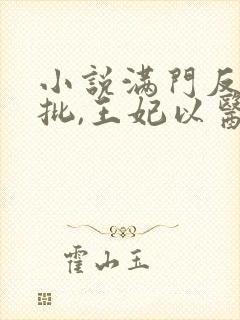 小說滿門反
批,王妃以醫
霍山玉